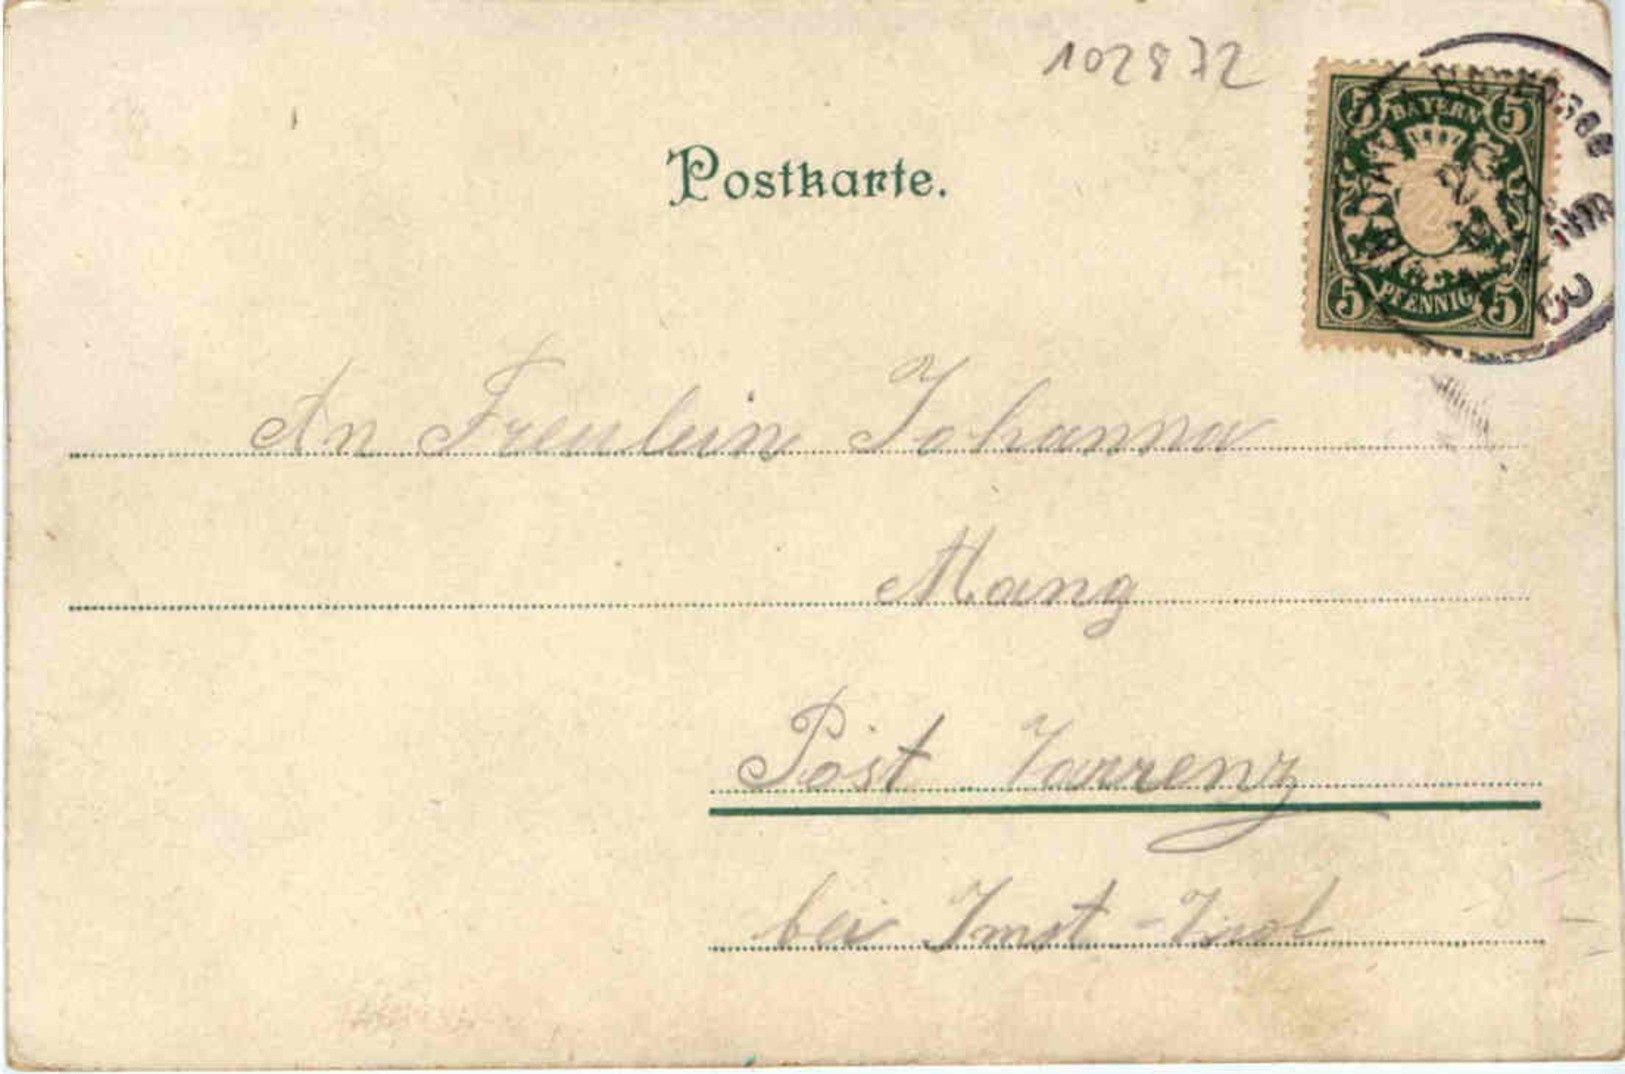 102872
5 BAYERN 5
5 PFENNIG 5
Postkarte.
An Freulein Johanna
Mang
Post Tarrenz
bei Imst - Tirol